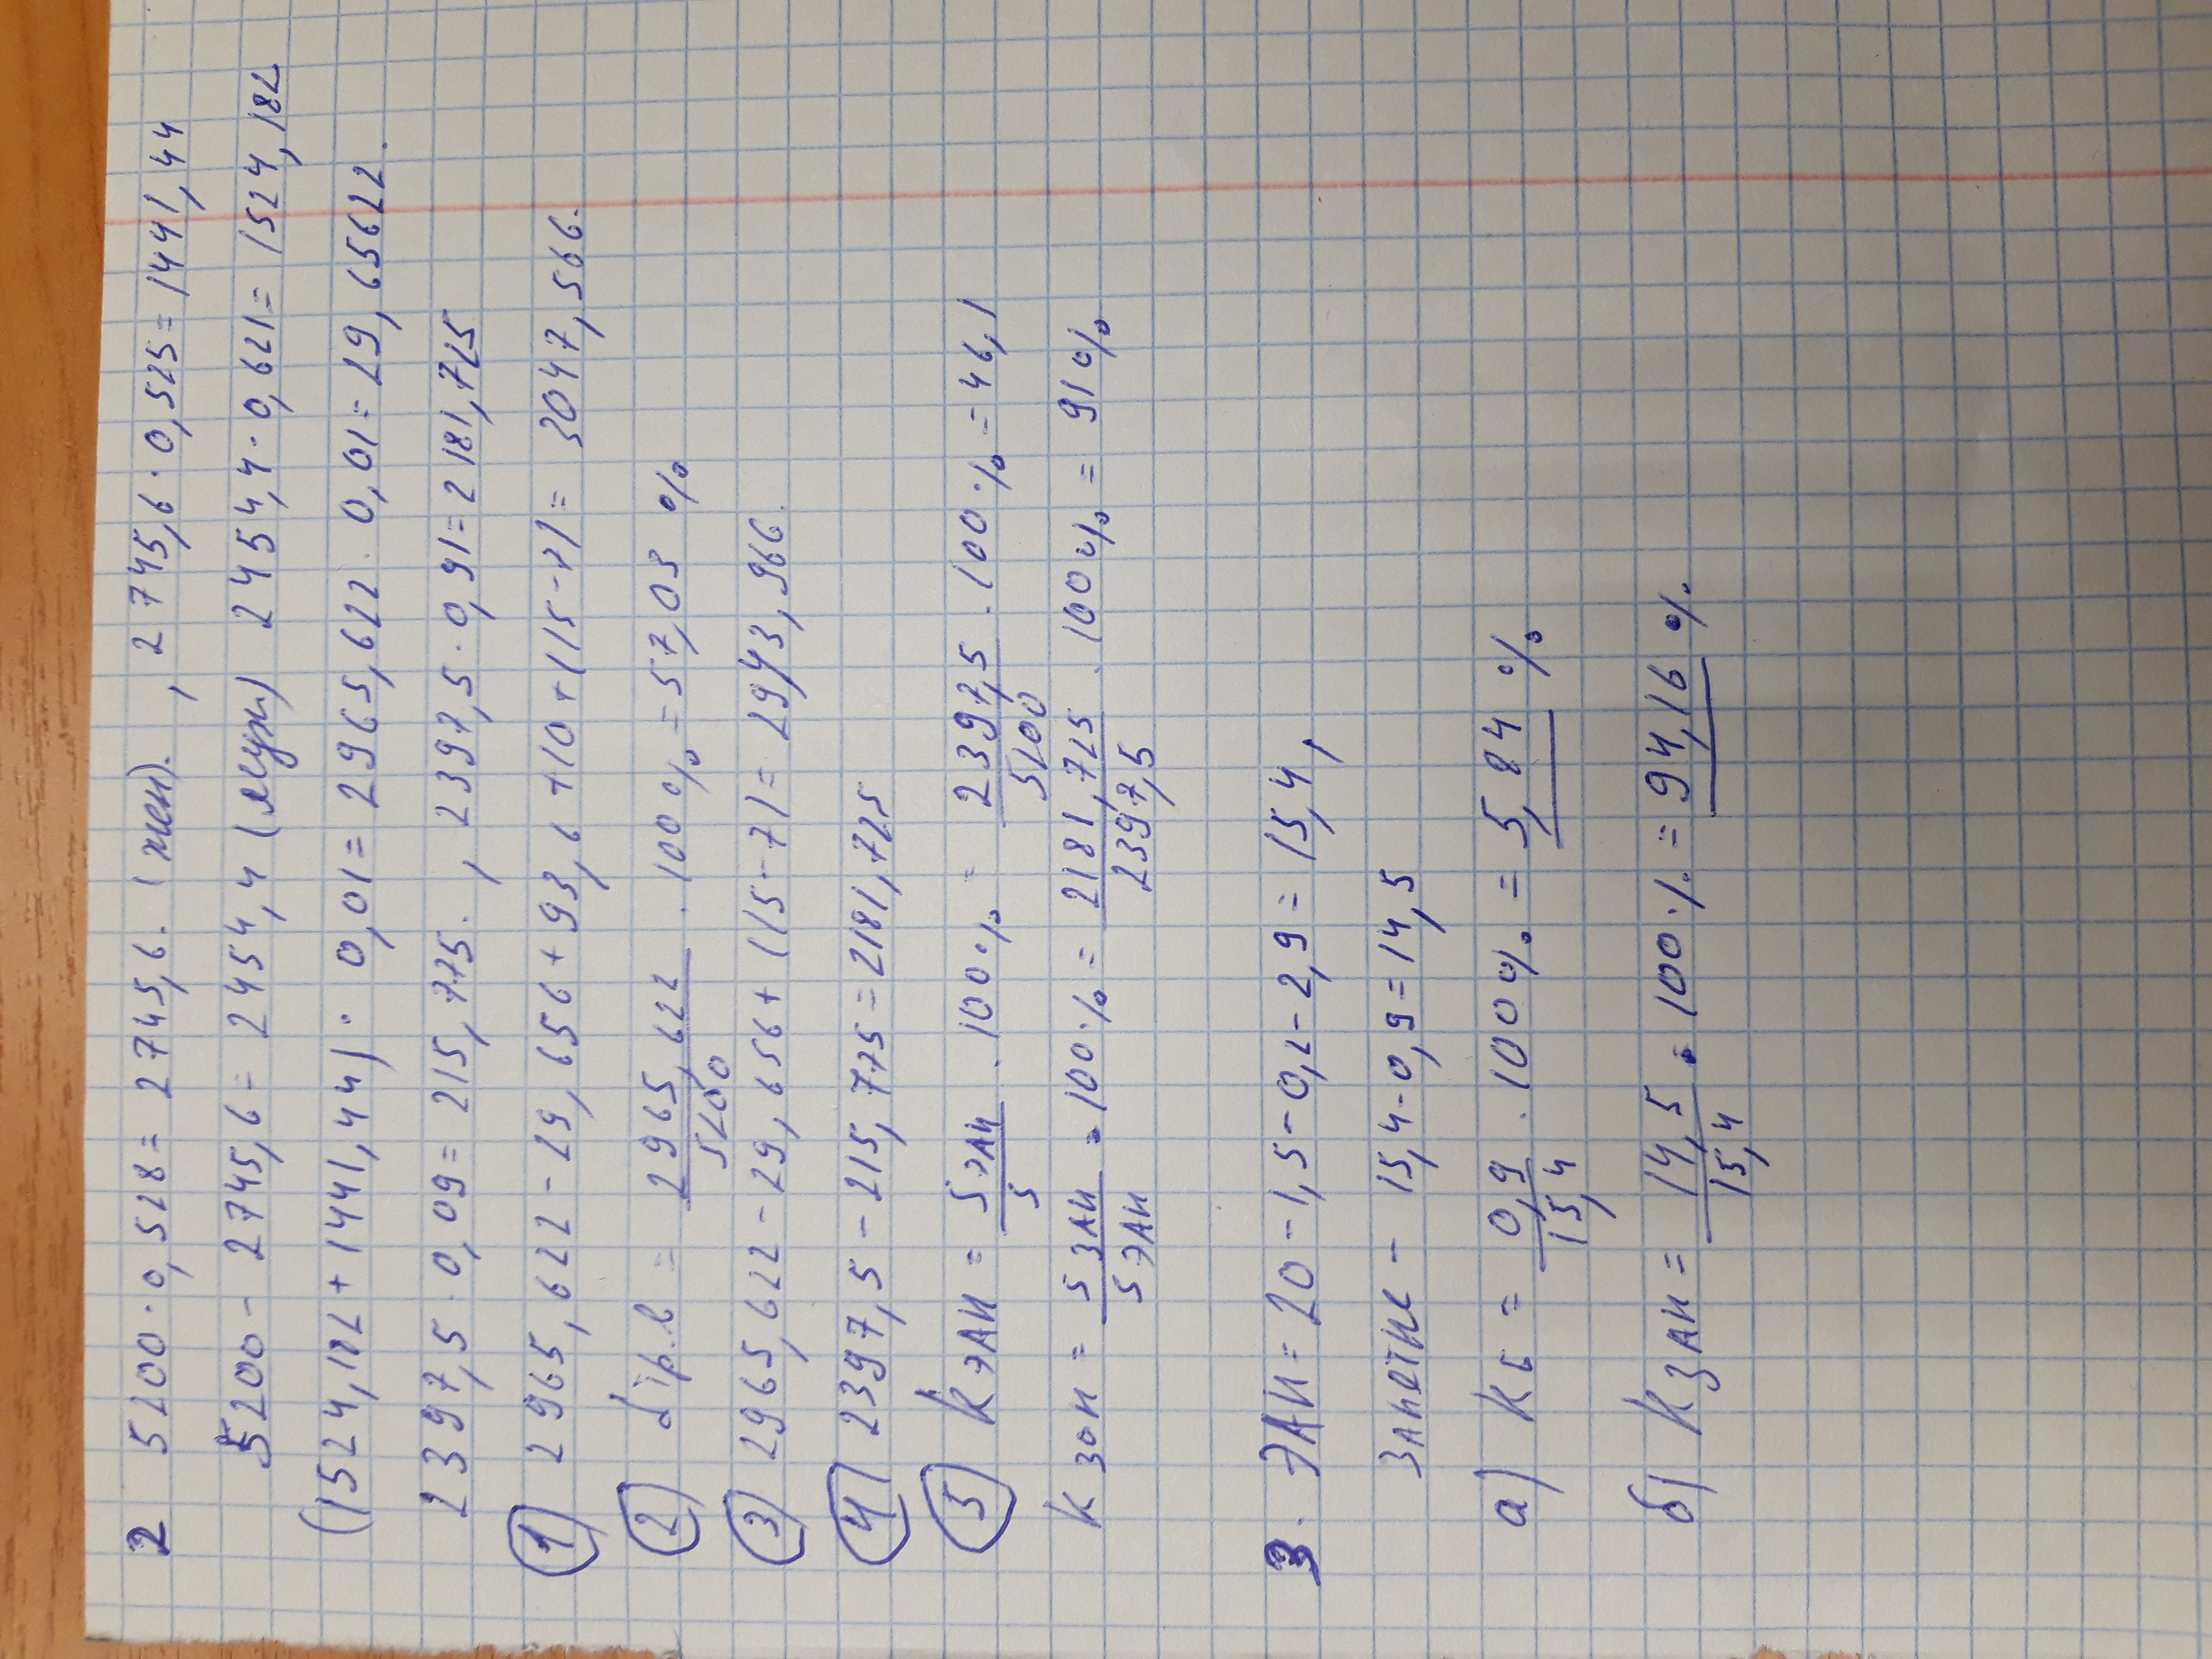 2 5200·0,528=2745,6. (жен). , 2745,6·0,525=1441,44
5200-2745,6=2454,4 (мужи) 2454,4·0,621=1524,182
(1524,182+1441,44)·0,01=2965,622·0,01=29,65622.
2397,5·0,09=215,775. , 2397,5·0,91=2181,725
① 2965,622-29,656+93,6+10+(15-7)=3047,566.
② dтр.в = 2965,622/5200 ·100%=57,03%
③ 2965,622-29,656+(15-7)=2943,966.
④ 2397,5-215,775=2181,725
⑤ kЭАН = SЭАН/S ·100% = 2397,5/5200 ·100%=46,1
kзан = SЗАН/SЭАН ·100%= 2181,725/2397,5 ·100%= 91%
3. ЭАН=20-1,5-0,2-2,9=15,4,
Занятые - 15,4-0,9=14,5
а) Kб = 0,9/15,4 ·100%=5,84%
б) Kзан = 14,5/15,4 ·100%=94,16%